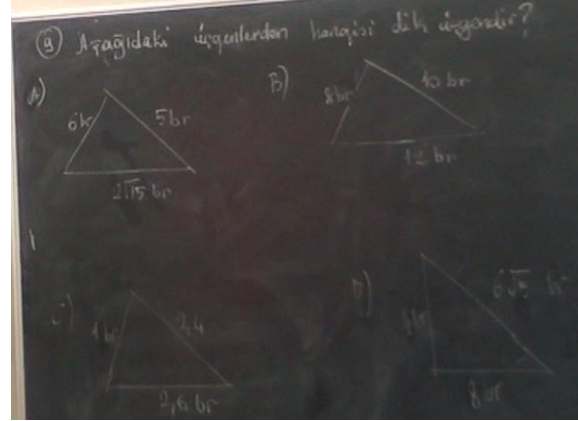 9 Aşağıdaki üçgenlerden hangisi dik üçgendir?
A)
6br
5br
2√15 br
B)
8br
10 br
12 br
C)
1br
2,4
2,6 br
D)
6√5 br
8br